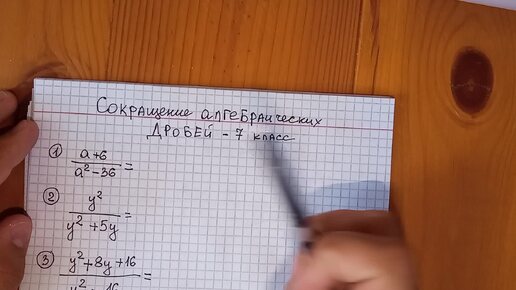 Сокращение алгебраических
дробей - 7 класс
① a+6
a²-36 =
② y²
y²+5y =
③ y²+8y+16
y²-16 =